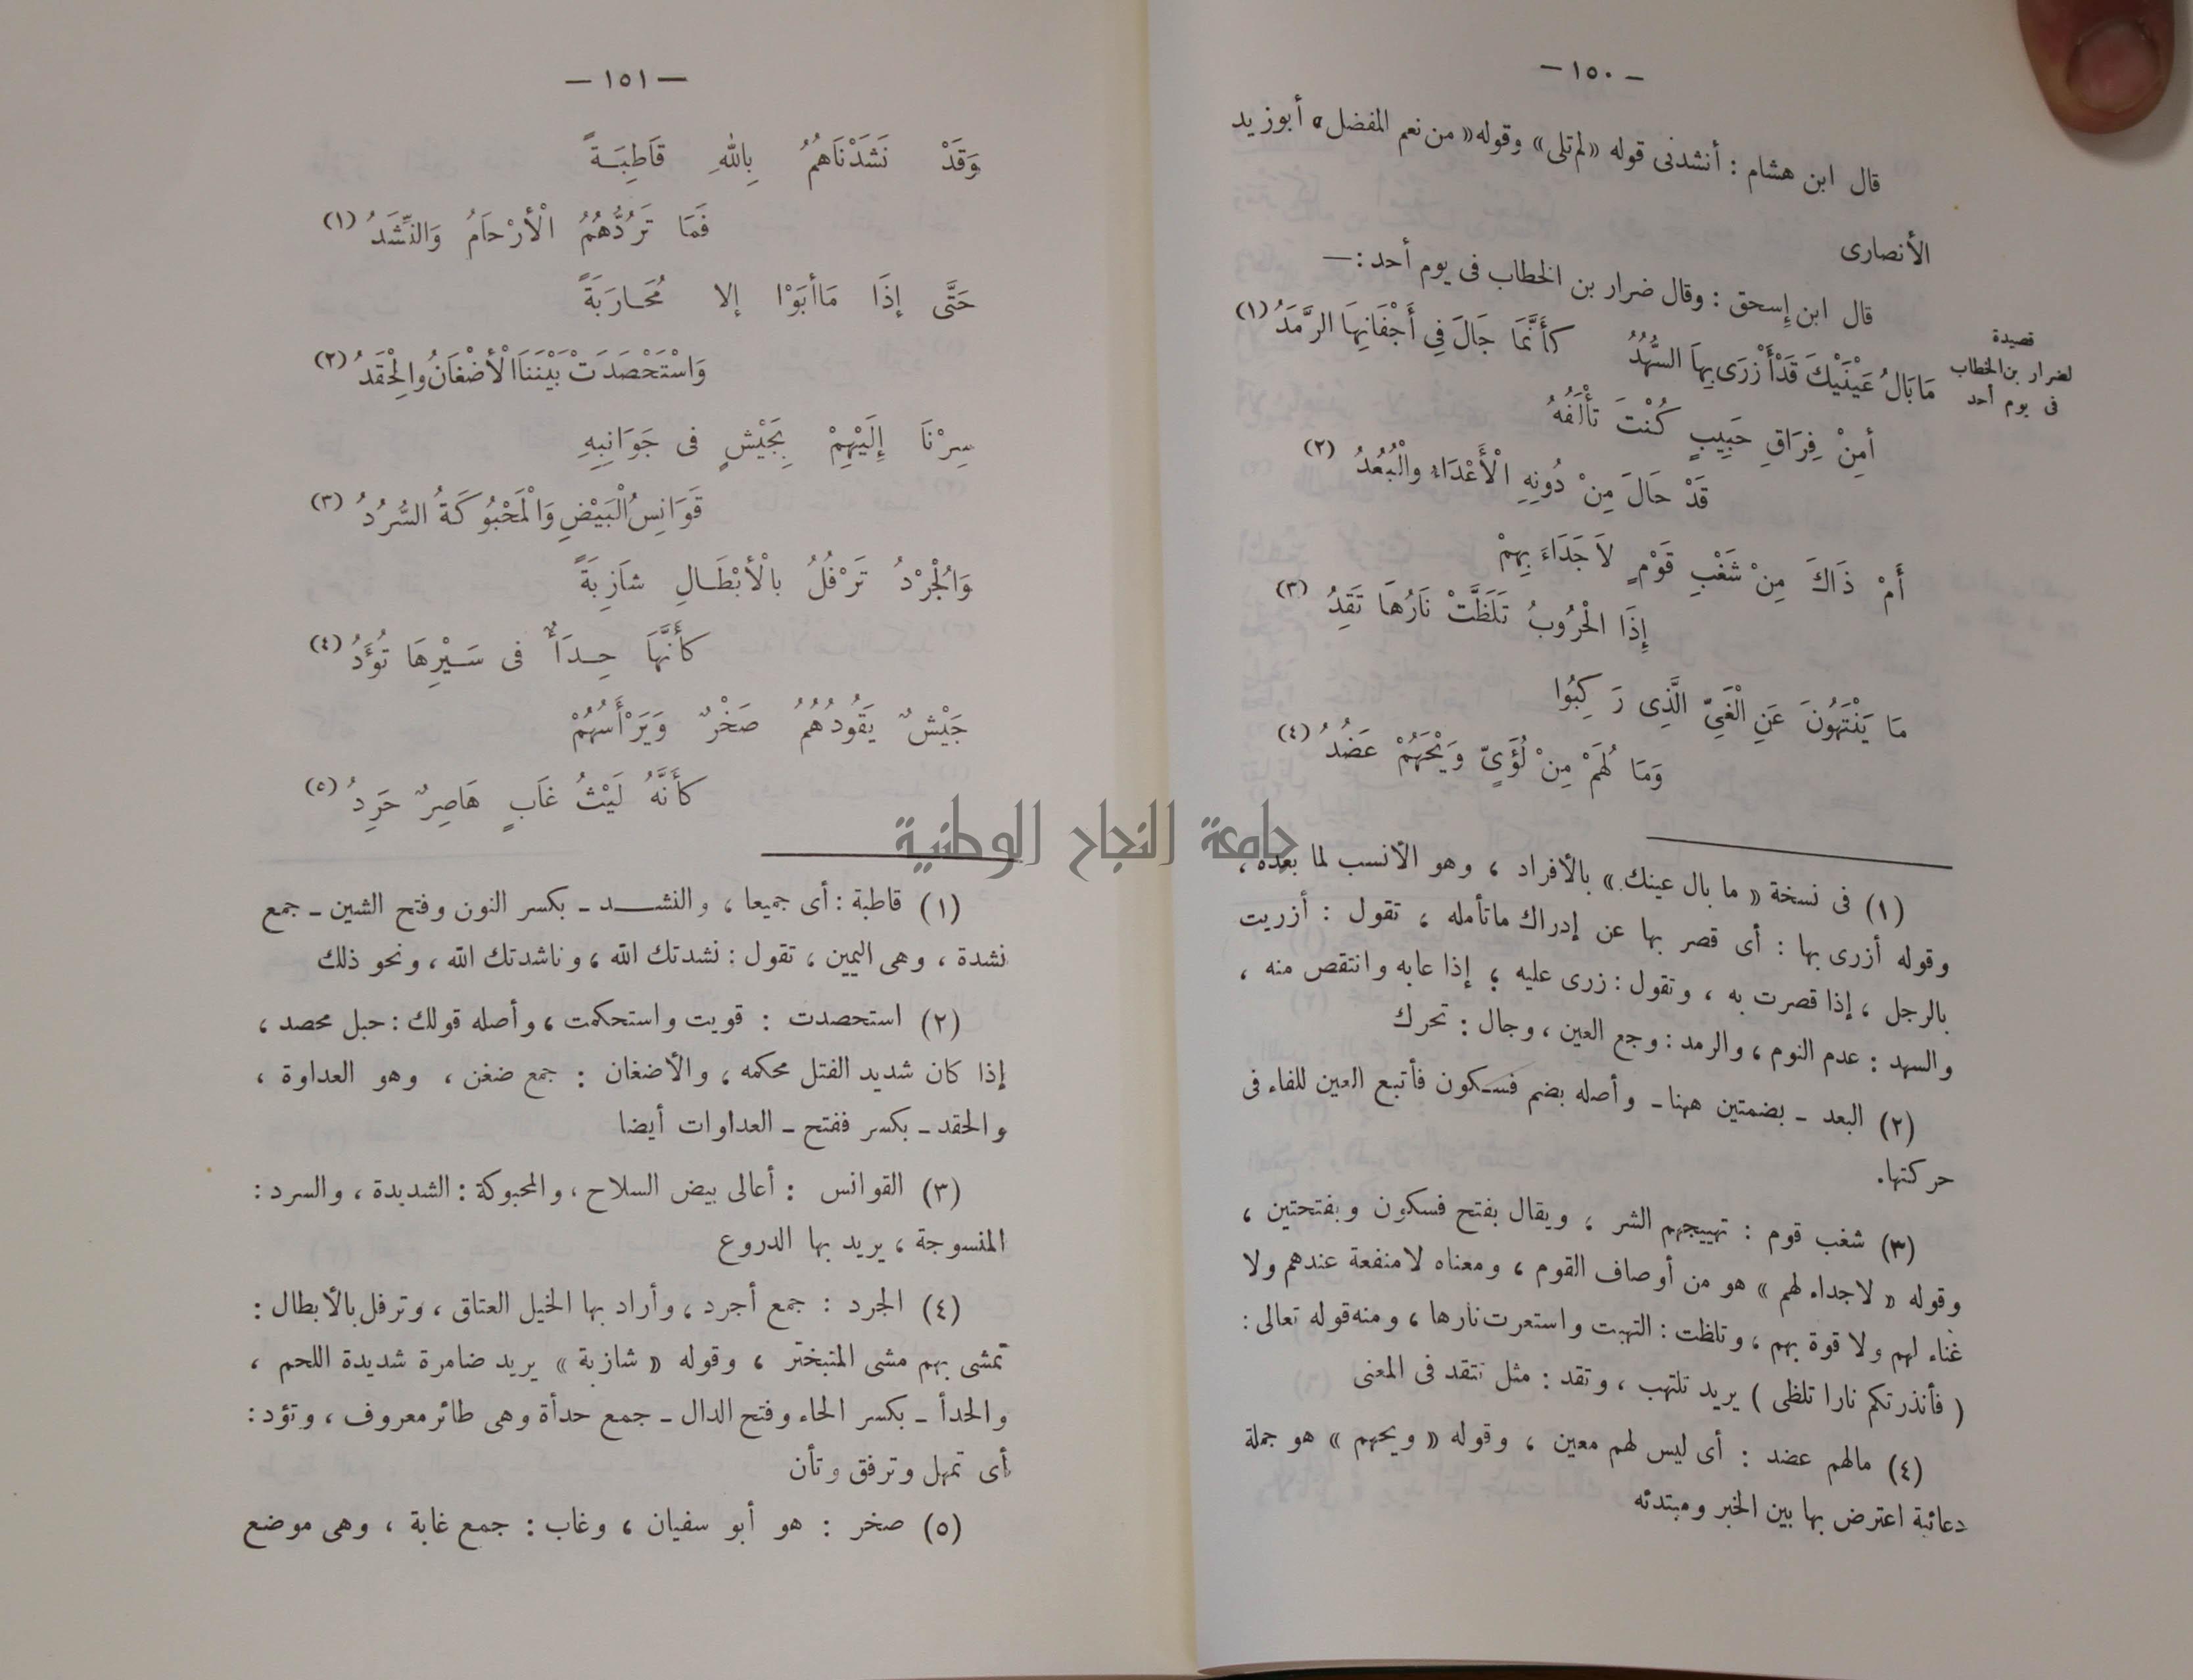 — ١٥٠ —
قال ابن هشام : أنشدنى قوله «لم تلى» وقوله «من نعم المفضل» أبو زيد
الأنصارى
قال ابن إسحق : وقال ضرار بن الخطاب فى يوم أحد : —
قصيدة
لضرار بن الخطاب
فى يوم أحد
مَا بَالُ عَيْنَيْكَ قَدْ أَزْرَى بِهَا السُّهُدُ كأَنَّمَا جَالَ فِي أَجْفَانِهَا الرَّمَدُ (١)
أمِنْ فِرَاقِ حَبِيبٍ كُنْتَ تأْلَفُهُ
قَدْ حَالَ مِنْ دُونِهِ الْأَعْدَاءُ والْبُعُدُ (٢)
أَمْ ذَاكَ مِنْ شَغْبِ قَوْمٍ لاَ جَدَاءَ بِهِمْ
إِذَا الْحُرُوبُ تَلَظَّتْ نَارُهَا تَقِدُ (٣)
مَا يَنْتَهُونَ عَنِ الْغَيِّ الَّذِى رَكِبُوا
وَمَا لَهُمْ مِنْ لُؤَيٍّ وَيْحَهُمْ عَضُدُ (٤)
(١) فى نسخة « ما بال عينك » بالأفراد ، وهو الأنسب لما بعده ،
وقوله أزرى بها : أى قصر بها عن إدراك ماتأمله ، تقول : أزريت
بالرجل ، إذا قصرت به ، وتقول : زرى عليه ؛ إذا عابه وانتقص منه ،
والسهد : عدم النوم ، والرمد : وجع العين ، وجال : تحرك
(٢) البعد ـ بضمتين ههنا ـ وأصله بضم فسكون فأتبع العين للفاء فى
حركتها.
(٣) شغب قوم : تهييجهم الشر ، ويقال بفتح فسكون وبفتحتين ،
وقوله « لاجداء لهم » هو من أوصاف القوم ، ومعناه لامنفعة عندهم ولا
غناء لهم ولا قوة بهم ، وتلظت : التهبت واستعرت نارها ، ومنه قوله تعالى :
( فأنذرتكم نارا تلظى ) يريد تلتهب ، وتقد : مثل تتقد فى المعنى
(٤) مالهم عضد : أى ليس لهم معين ، وقوله « ويحهم » هو جملة
دعائية اعترض بها بين الخبر ومبتدئه
— ١٥١ —
وَقَدْ نَشَدْنَاهُمُ بِاللهِ قَاطِبَـةً
فَمَا تَرُدُّهُمُ الْأَرْحَامُ وَالنِّشَدُ (١)
حَتَّى إِذَا مَاأبَوْا إلا مُحَـارَبَةً
وَاسْتَحْصَدَتْ بَيْنَنَا الْأضْغَانُ والْحِقَدُ (٢)
سِرْنَا إِلَيْهِمْ بِجَيْشٍ فى جَوَانِبِهِ
قَوَانِسُ الْبَيْضِ وَالْمَحْبُوكَةُ السُّرُدُ (٣)
وَالْجُرْدُ تَرْفُلُ بالْأَبْطَـالِ شاَزِبَةً
كأَنَّهَا حِـدَأٌ فى سَـيْرِهَا تُؤَدُ (٤)
جَيْشٌ يَقُودُهُمُ صَخْرٌ وَيَرْأَسُهُمْ
كأَنَّهُ لَيْثُ غَابٍ هَاصِرٌ حَرِدُ (٥)
(١) قاطبة : أى جميعا ، والنشـــد ـ بكسر النون وفتح الشين ـ جمع
نشدة ، وهى اليمين ، تقول : نشدتك الله ، وناشدتك الله ، ونحو ذلك
(٢) استحصدت : قويت واستحكمت ، وأصله قولك : حبل محصد ،
إذا كان شديد الفتل محكمه ، والأضغان : جمع ضغن ، وهو العداوة ،
والحقد ـ بكسر ففتح ـ العداوات أيضا
(٣) القوانس : أعالى بيض السلاح ، والمحبوكة : الشديدة ، والسرد :
المنسوجة ، يريد بها الدروع
(٤) الجرد : جمع أجرد ، وأراد بها الخيل العتاق ، وترفل بالأبطال :
تمشى بهم مشى المتبختر ، وقوله « شازبة » يريد ضامرة شديدة اللحم ،
والحدأ ـ بكسر الحاء وفتح الدال ـ جمع حدأة وهى طائر معروف ، وتؤد :
أى تمهل وترفق وتأن
(٥) صخر : هو أبو سفيان ، وغاب : جمع غابة ، وهى موضع
جامعة النجاح الوطنية